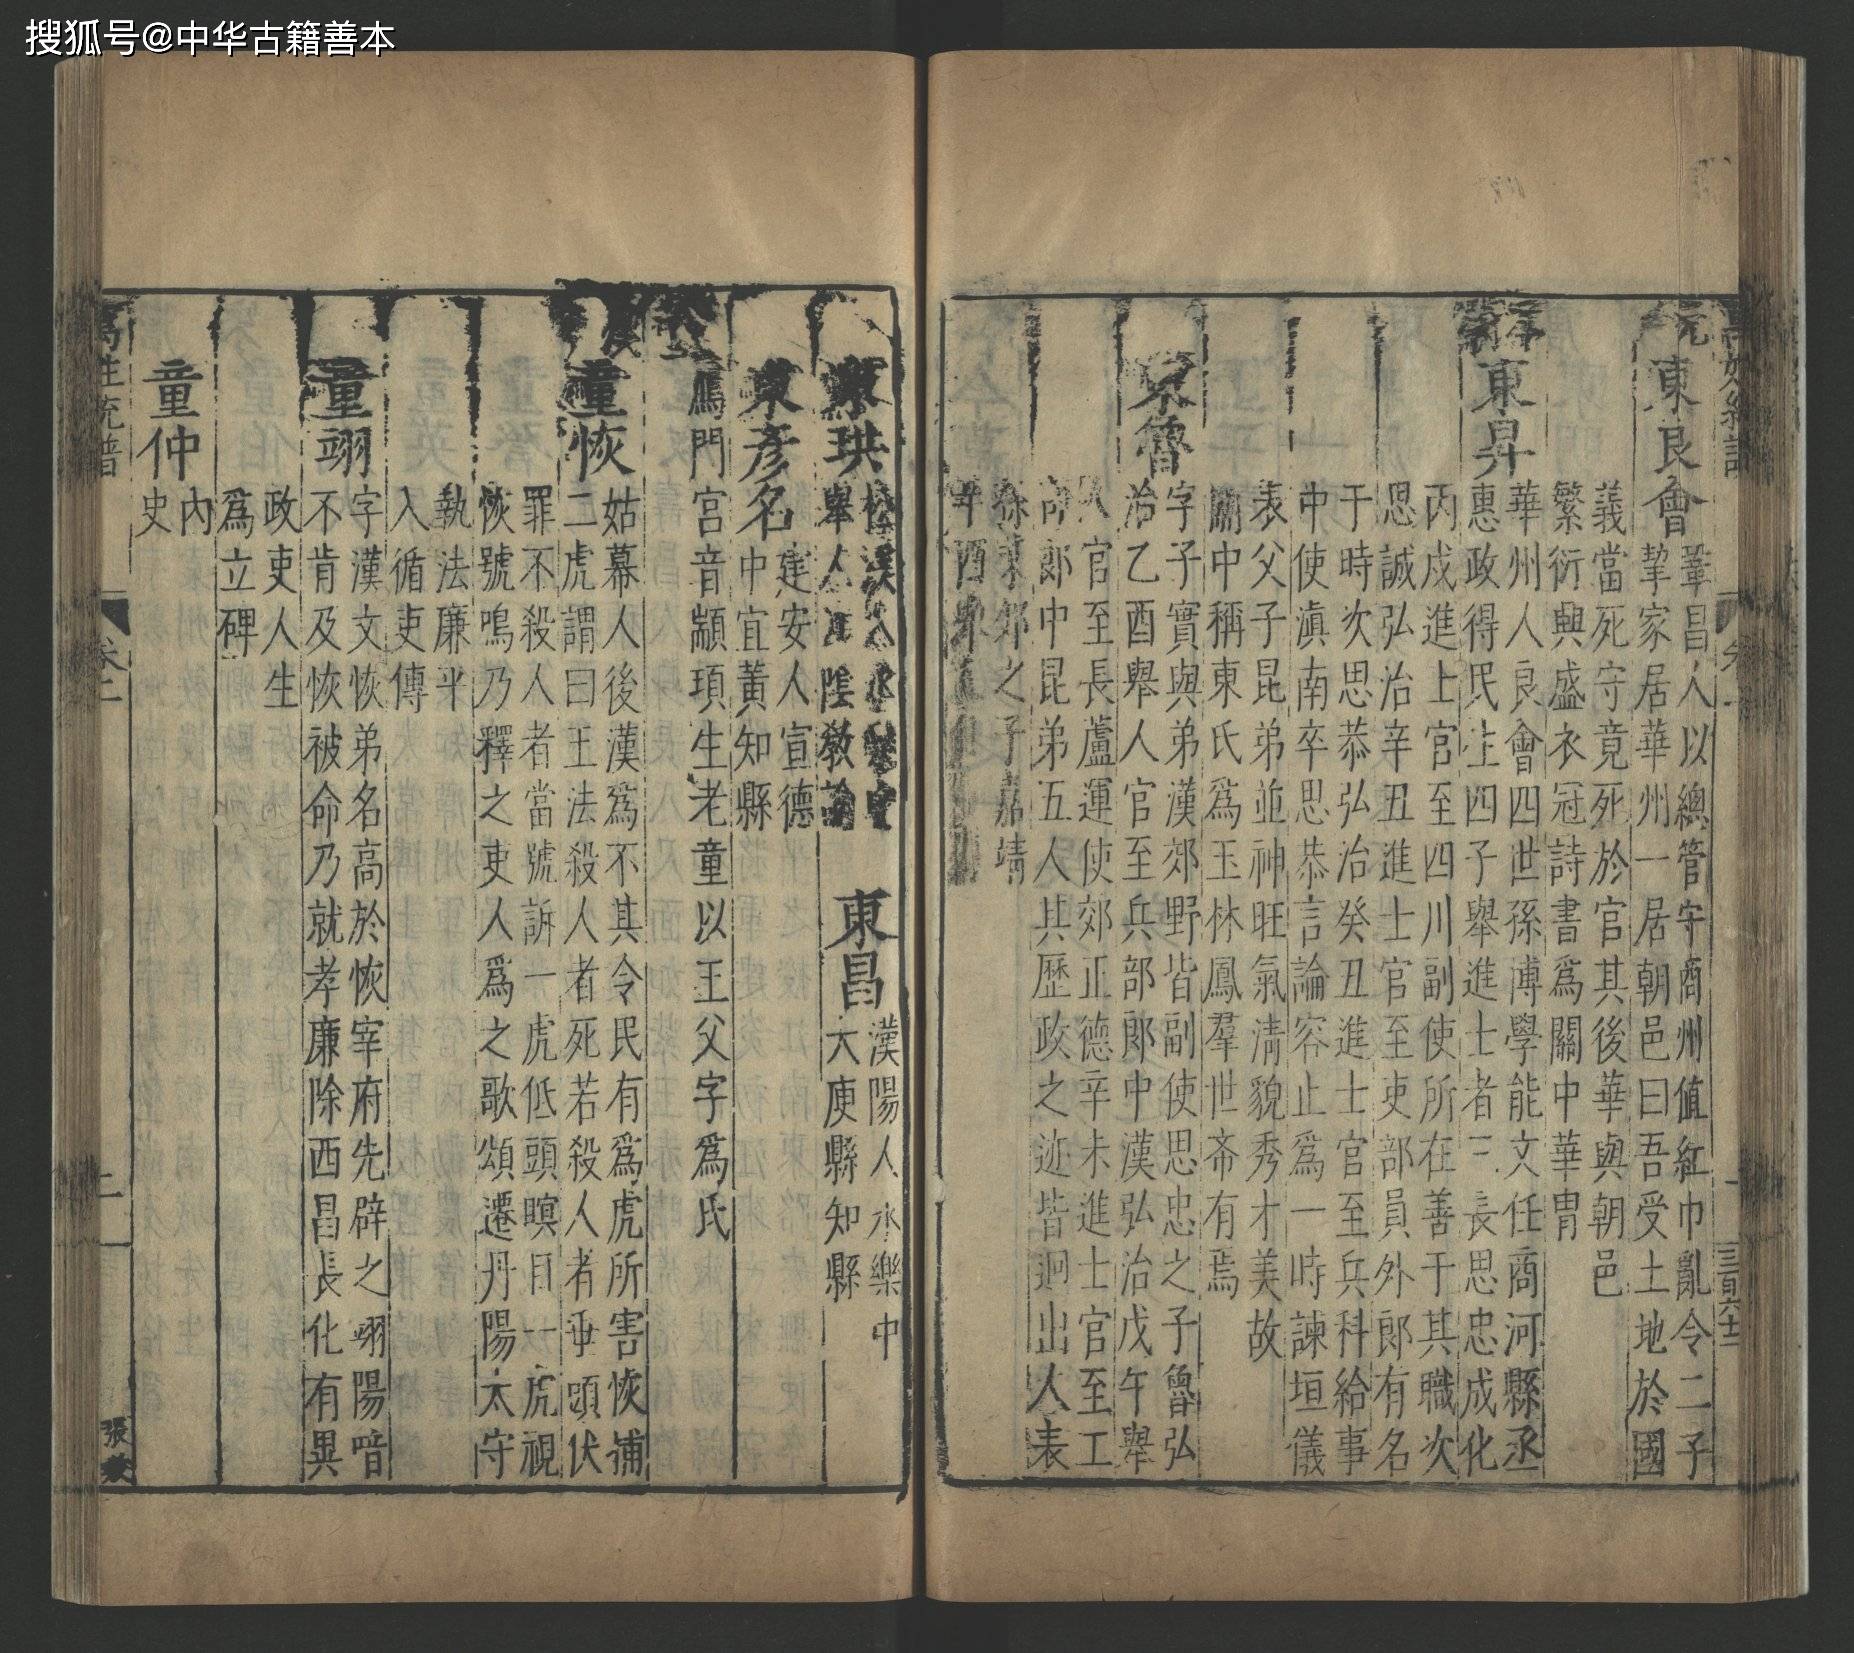 搜狐号@中华古籍善本
元
東良會
鞏昌人以總管守商州值紅巾亂令二子
挈家居華州一居朝邑曰吾受土地於國
義當死守竟死於官其後華與朝邑
繁衍興盛衣冠詩書為關中華胄
東昇
華州人良會四世孫博學能文任商河縣丞
惠政得民生四子舉進士者三長思忠成化
丙戌進士官至四川副使所在善于其職次
思誠弘治辛丑進士官至吏部員外郎有名
于時次思恭弘治癸丑進士官至兵科給事
中使滇南卒思恭言論容止為一時諫垣儀
表父子昆弟並神旺氣清貌秀才美故
關中稱東氏為玉林鳳羣世斋有焉
東魯
字子實與弟漢郊野皆副使思忠之子魯弘
治乙酉舉人官至兵部郎中漢弘治戊午舉
人官至長蘆運使郊正德辛未進士官至工
部郎中昆弟五人其歷政之迹皆迥出人表
東郊之子嘉靖
酉
三百六十二
東珙
舉人江陰教諭
東昌
漢陽人永樂中
大庾縣知縣
東彥名
建安人宣德
中宜黃知縣
童
鴈門宮音顓頊生老童以王父字為氏
漢
童恢
姑幕人後漢為不其令民有為虎所害恢捕
二虎謂曰王法殺人者死若殺人者垂頭伏
罪不殺人者當號訴一虎低頭瞑目一虎視
恢號鳴乃釋之吏人為之歌頌遷丹陽太守
執法廉平
入循吏傳
童翊
字漢文恢弟名高於恢宰府先辟之翊陽喑
不肯及恢被命乃就孝廉除西昌長化有異
政吏人生
為立碑
童仲
內
史
萬姓統譜
卷二
二
張